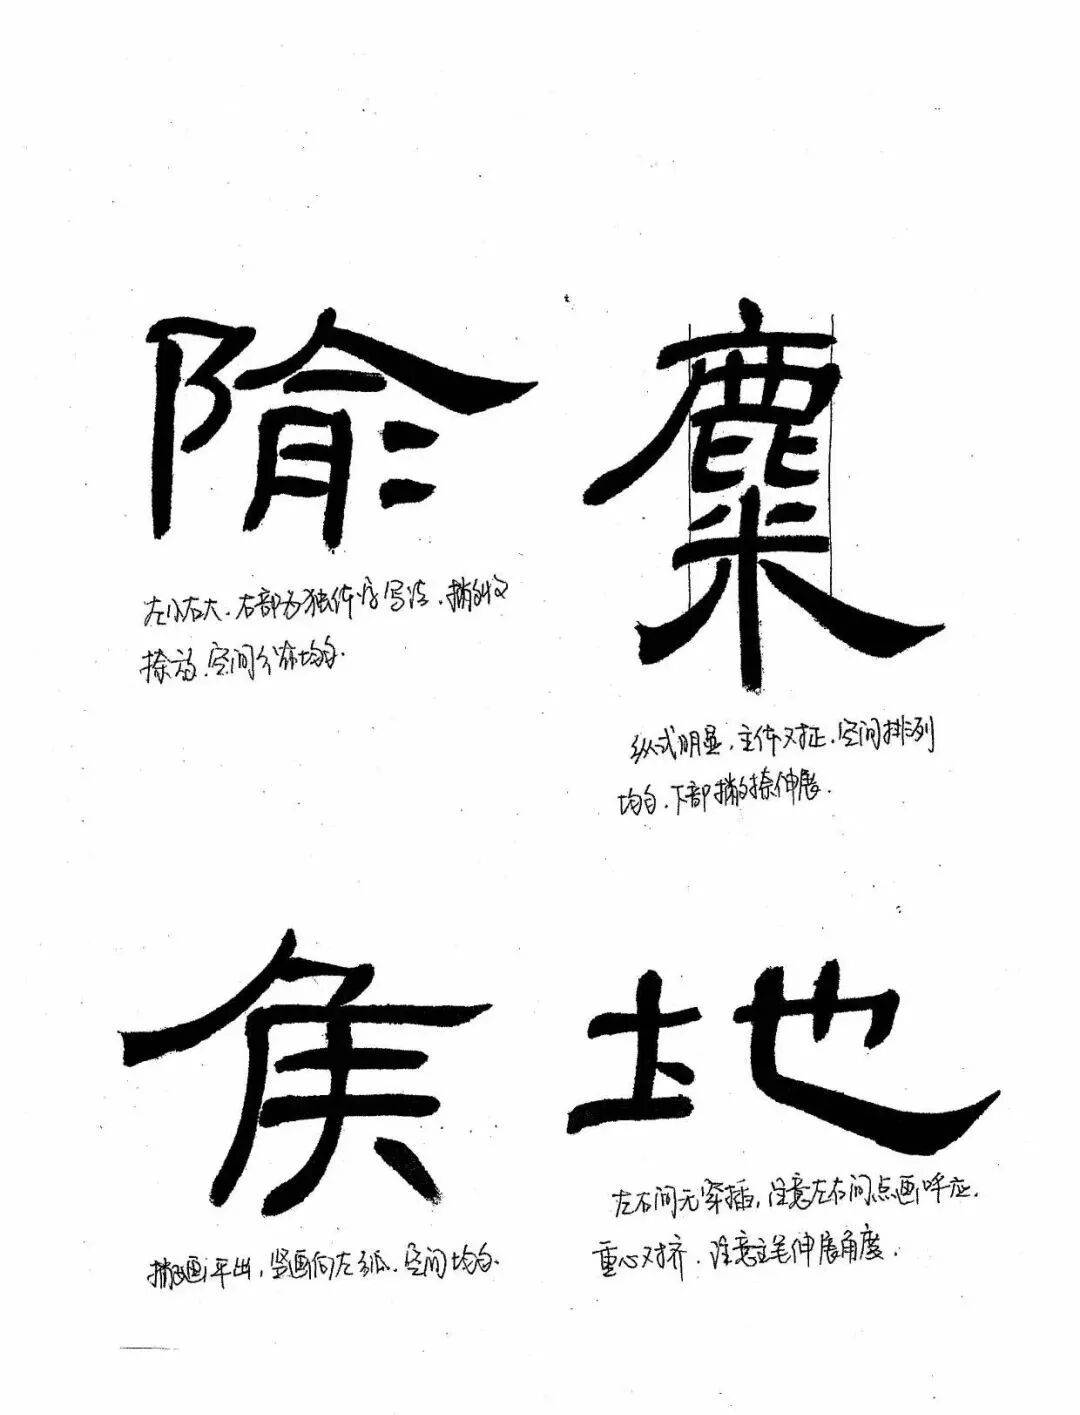 隃
左小右大、右部为独体字写法、撇收
捺放、空间分布均匀.
麋
纵式明显、主体对正、空间排列
均匀、下部撇捺伸展.
侯
撇画平出、竖画向左弧、空间均匀.
地
左右间无穿插，注意左右间点画呼应、
重心对齐、注意主笔伸展角度.